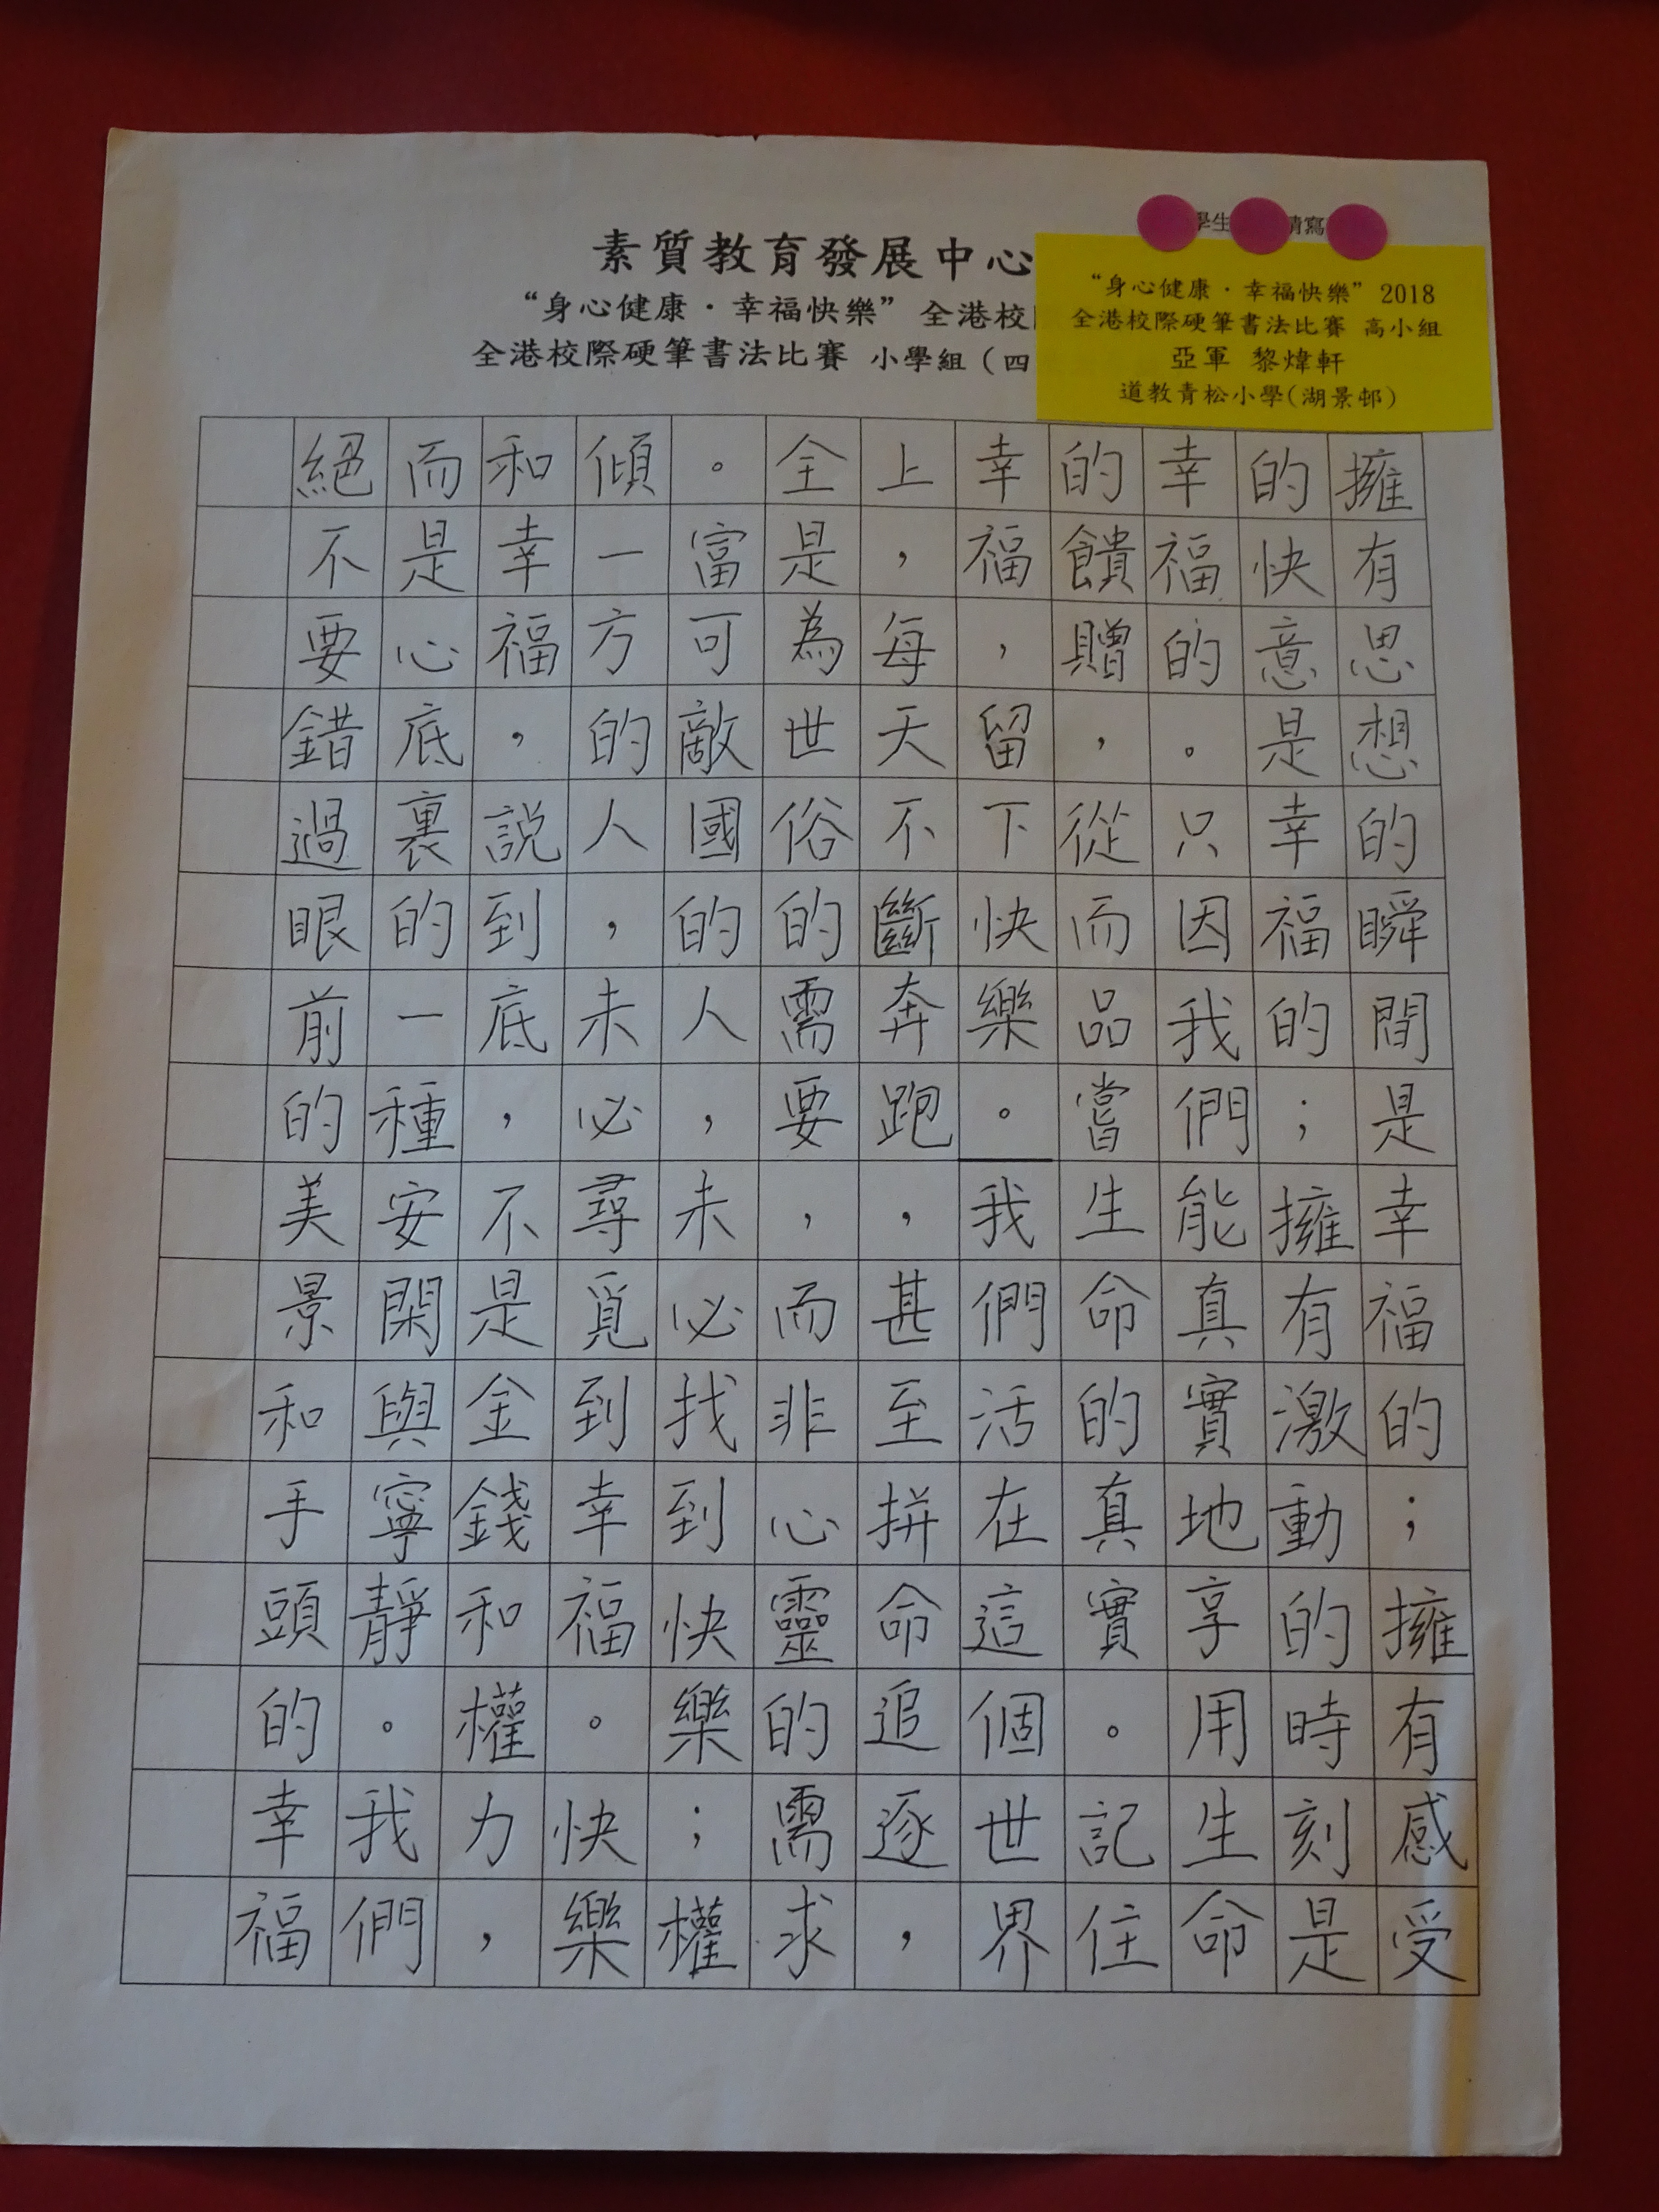 學生 請寫
素質教育發展中心
“身心健康·幸福快樂”全港校
全港校際硬筆書法比賽 小學組(四
“身心健康·幸福快樂”2018
全港校際硬筆書法比賽 高小組
亞軍 黎煒軒
道教青松小學(湖景邨)
擁有思想的瞬間是幸福的;擁有感受
的快意是幸福的;擁有激動的時刻是
幸福的。只因我們能真實地享用生命
的饋贈,從而品嘗生命的真實。記住
幸福,留下快樂。我們活在這個世界
上,每天不斷奔跑,甚至拼命追逐,
全是為世俗的需要,而非心靈的需求
。富可敵國的人,未必找到快樂;權
傾一方的人,未必尋覓到幸福。快樂
和幸福,說到底,不是金錢和權力,
而是心底裏的一種安閑與寧靜。我們
絕不要錯過眼前的美景和手頭的幸福